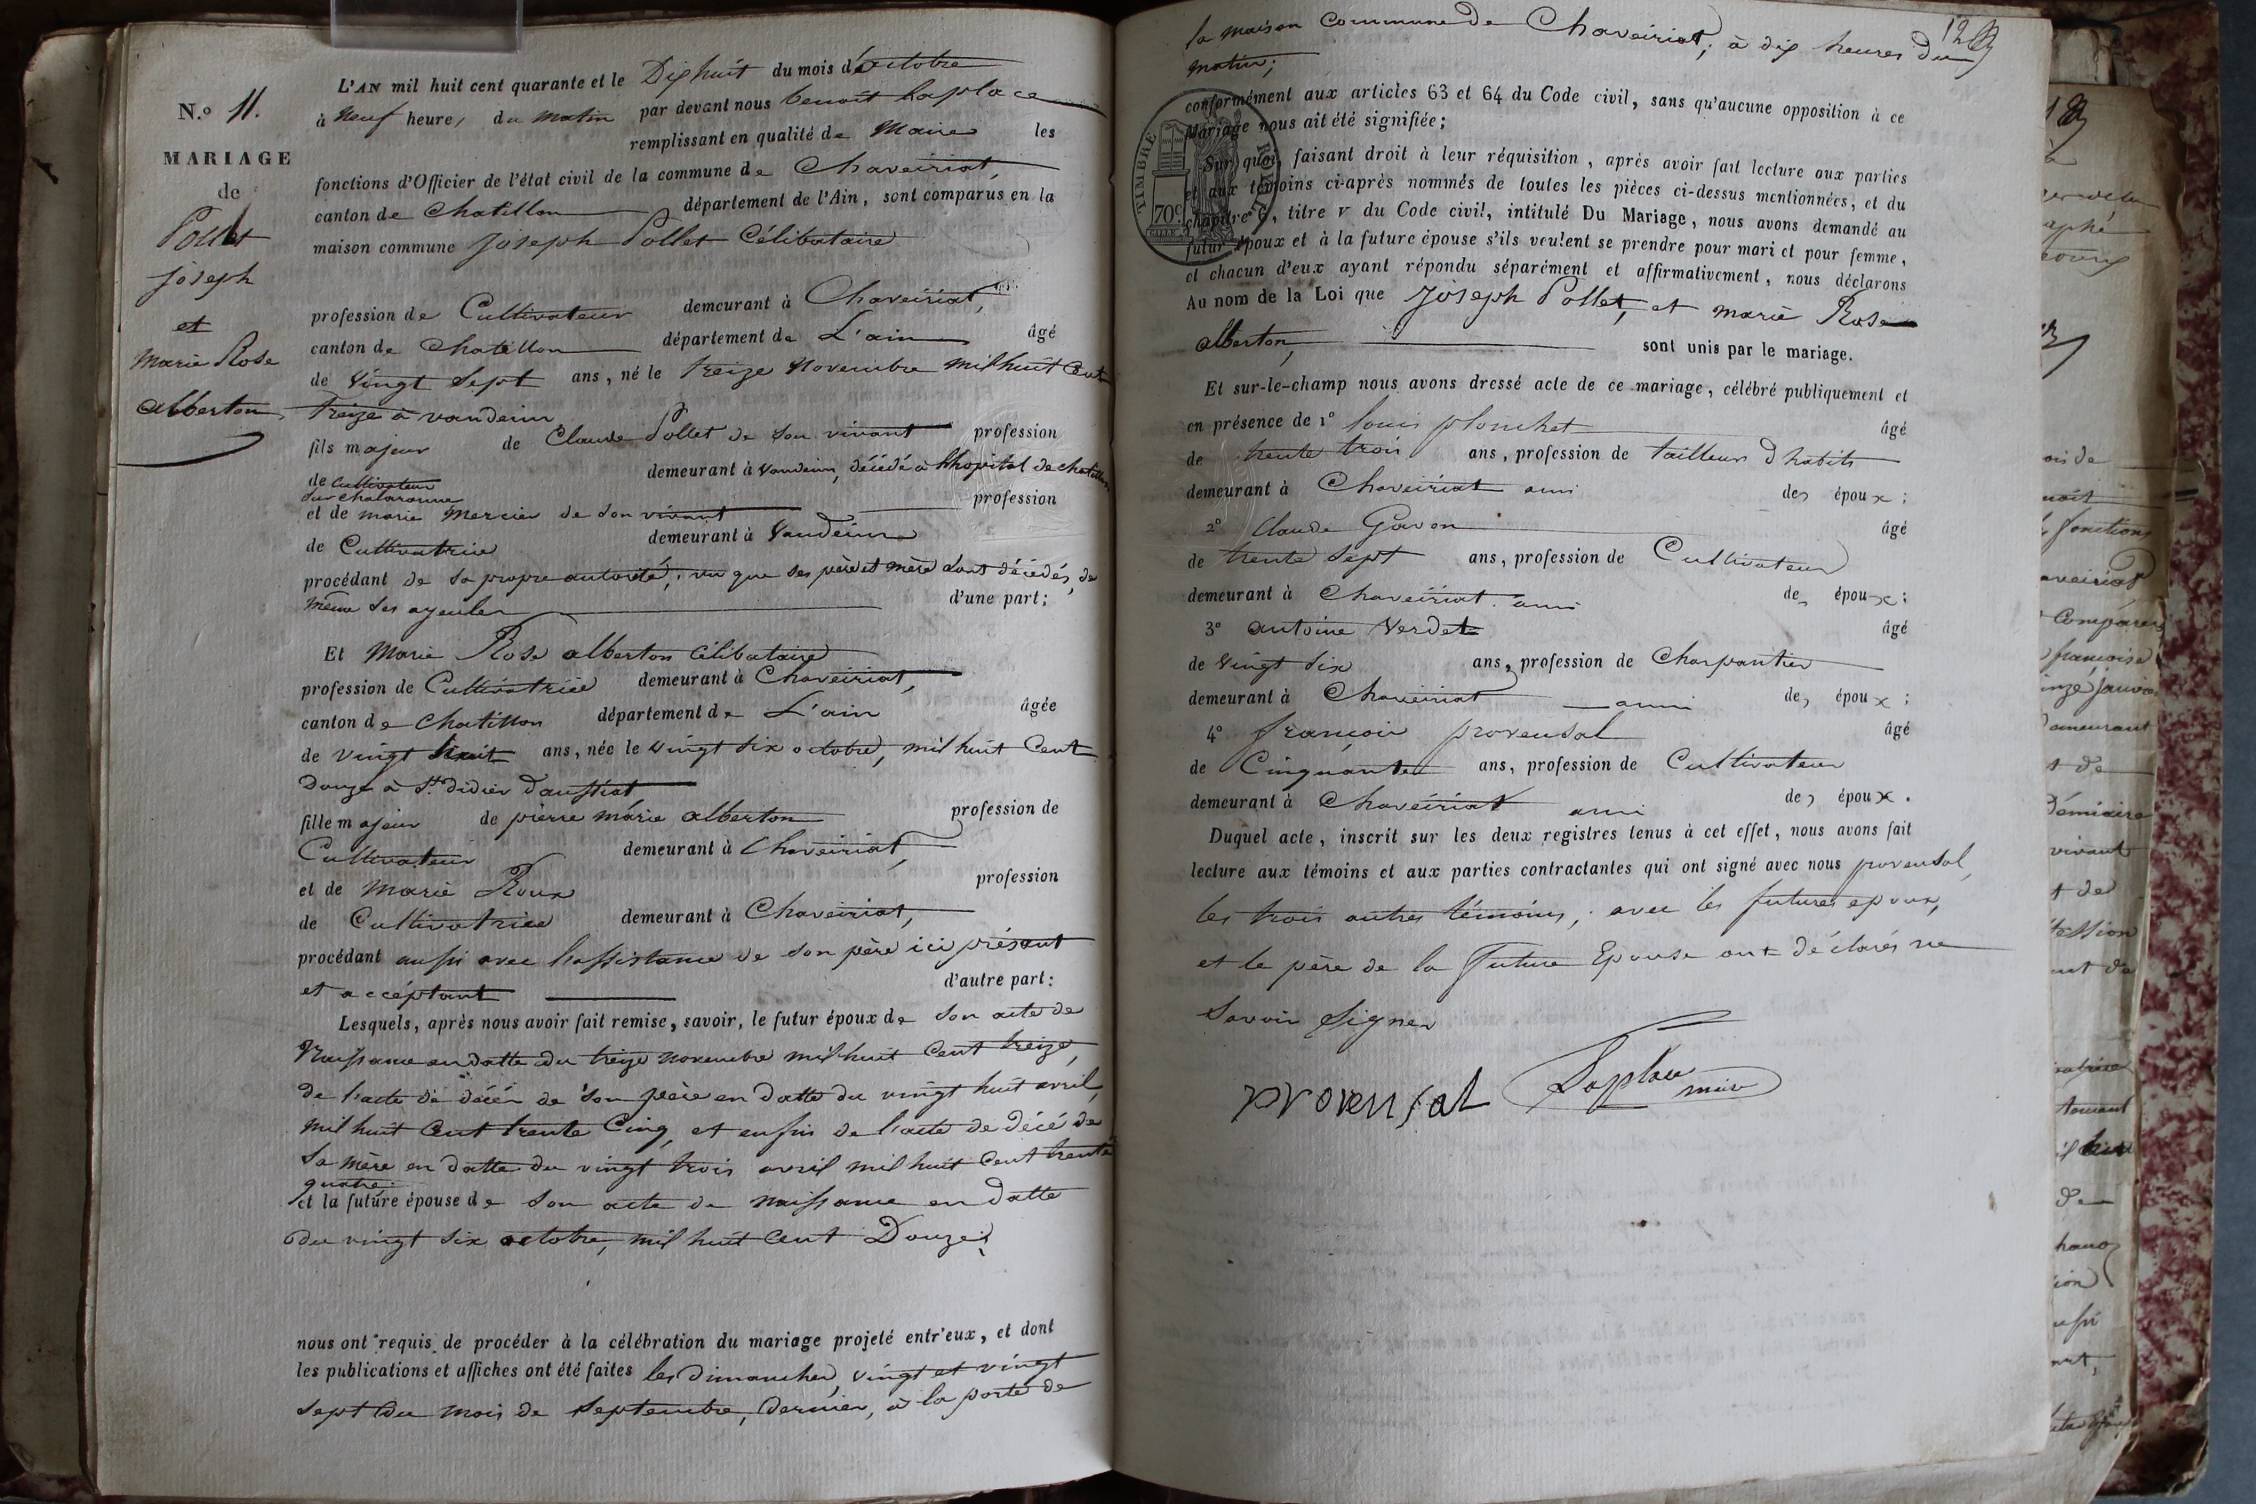 N.º 11.
MARIAGE
de
Pollet
joseph
et
Marie Rose
alberton,
L'AN mil huit cent quarante et le Dix huit du mois d'octobre
à neuf heures du matin par devant nous benoit Laplace
remplissant en qualité de Maire les
fonctions d'Officier de l'état civil de la commune de Chaveiriat,
canton de Chatillon département de l'Ain, sont comparus en la
maison commune Joseph Pollet Célibataire
profession de Cultivateur demeurant à Chaveiriat,
canton de Chatillon département de L'ain âgé
de vingt sept ans, né le treize Novembre mil huit Cent
Treize à vandeins
fils majeur de Claude Pollet de son vivant profession
de Cultivateur demeurant à Vandeins, décédé à l'hopital de chatillon
sur chalaronne profession
et de marie Mercier de son vivant
de Cultivatrice demeurant à Vandeins
procédant de sa propre autorité, vu que ses père et mère sont décédés, de
même ses ayeules d'une part;
Et Marie Rose alberton célibataire
profession de Cultivatrice demeurant à Chaveiriat,
canton de Chatillon département de L'ain âgée
de vingt huit ans, née le vingt six octobre, mil huit Cent
Douze à St. didier d'aussiat
fille majeur de pierre marie alberton profession de
Cultivateur demeurant à Chaveiriat,
et de Marie Roux profession
de Cultivatrice demeurant à Chaveiriat,
procédant aussi avec l'assistance de son père ici présent
et accéptant d'autre part:
Lesquels, après nous avoir fait remise, savoir, le futur époux de son acte de
Naissance en datte du treize novembre mil huit Cent treize,
de l'acte de décés de son père en datte du vingt huit avril,
mil huit Cent trente Cinq, et enfin de l'acte de décé de
Sa mère en datte du vingt trois avril mil huit Cent trente
quatre.
et la future épouse de son acte de naissance en datte
du vingt six octobre, mil huit Cent Douze;
nous ont requis de procéder à la célébration du mariage projeté entr'eux, et dont
les publications et affiches ont été faites les dimanches, vingt et vingt
sept du mois de septembre, dernier, à la porte de
la maison commune de Chaveiriat, à dix heures du
matin;
conformément aux articles 63 et 64 du Code civil, sans qu'aucune opposition à ce
Mariage nous ait été signifiée;
Sur quoi, faisant droit à leur réquisition, après avoir fait lecture aux parties
et aux témoins ci-après nommés de toutes les pièces ci-dessus mentionnées, et du
chapitre 6, titre V du Code civil, intitulé Du Mariage, nous avons demandé au
futur époux et à la future épouse s'ils veulent se prendre pour mari et pour femme,
et chacun d'eux ayant répondu séparément et affirmativement, nous déclarons
Au nom de la Loi que Joseph Pollet, et marie Rose
alberton, sont unis par le mariage.
Et sur-le-champ nous avons dressé acte de ce mariage, célébré publiquement et
en présence de 1º louis plonchet âgé
de trente trois ans, profession de tailleur d'habits
demeurant à Chaveiriat ami des époux;
2º Claude Gavon âgé
de trente sept ans, profession de Cultivateur
demeurant à Chaveiriat. ami des époux;
3º antoine Verdet âgé
de vingt six ans, profession de Charpantier
demeurant à Chaveiriat ami des époux;
4º françois provensal âgé
de Cinquante ans, profession de Cultivateur
demeurant à Chavéiriat ami des époux.
Duquel acte, inscrit sur les deux registres tenus à cet effet, nous avons fait
lecture aux témoins et aux parties contractantes qui ont signé avec nous provensal,
les trois autres témoins, avec les futures epoux,
et le père de la future Epouse ont déclarés ne
Savoir Signer
provensal Laplace maire
TIMBRE ROYAL
70c